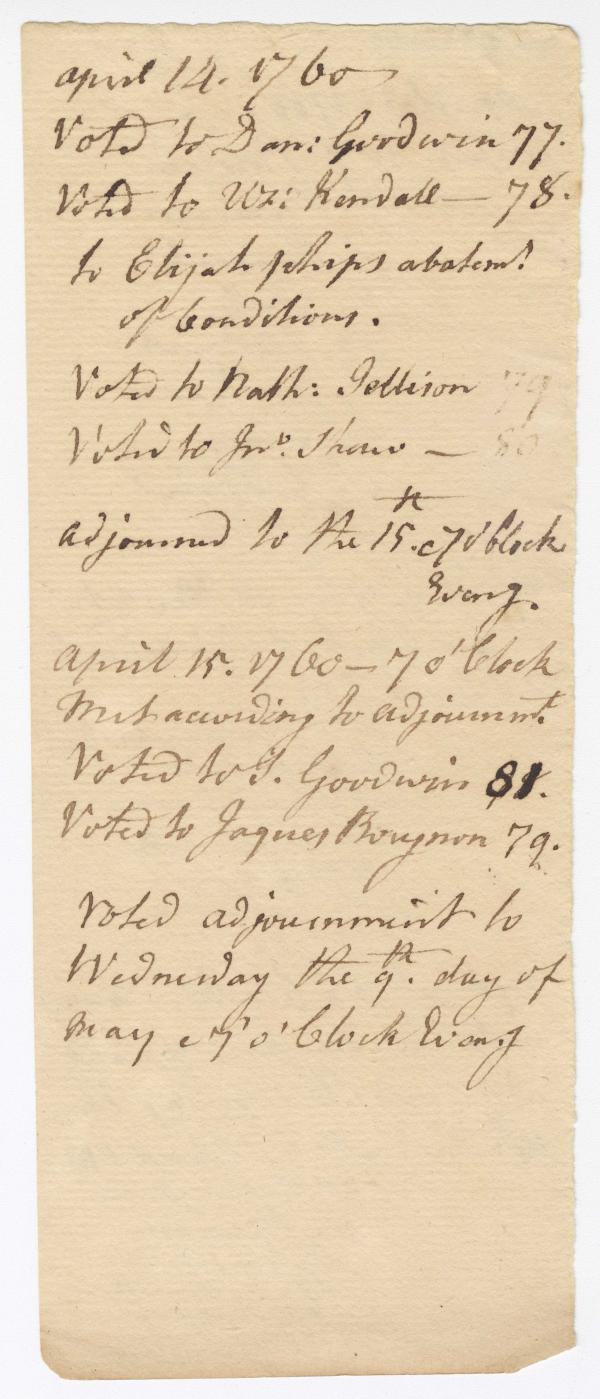 april 14. 1760
Voted to Dan: Goodwin 77.
Voted to Uz: Kendall — 78.
to Elijah phips abatemt.
of Conditions.
Voted to Nath: Jellison 79
Voted to Jno. Shaw — 80
adjourned to the 15.th 7 o'Clock
Eveng.
april 15. 1760 — 7 o'Clock
Met according to adjournmt.
Voted to J. Goodwin 81.
Voted to Jaques Bougnon 79.
Voted adjournment to
Wednesday the 9th. day of
May 7 o'Clock Eveng